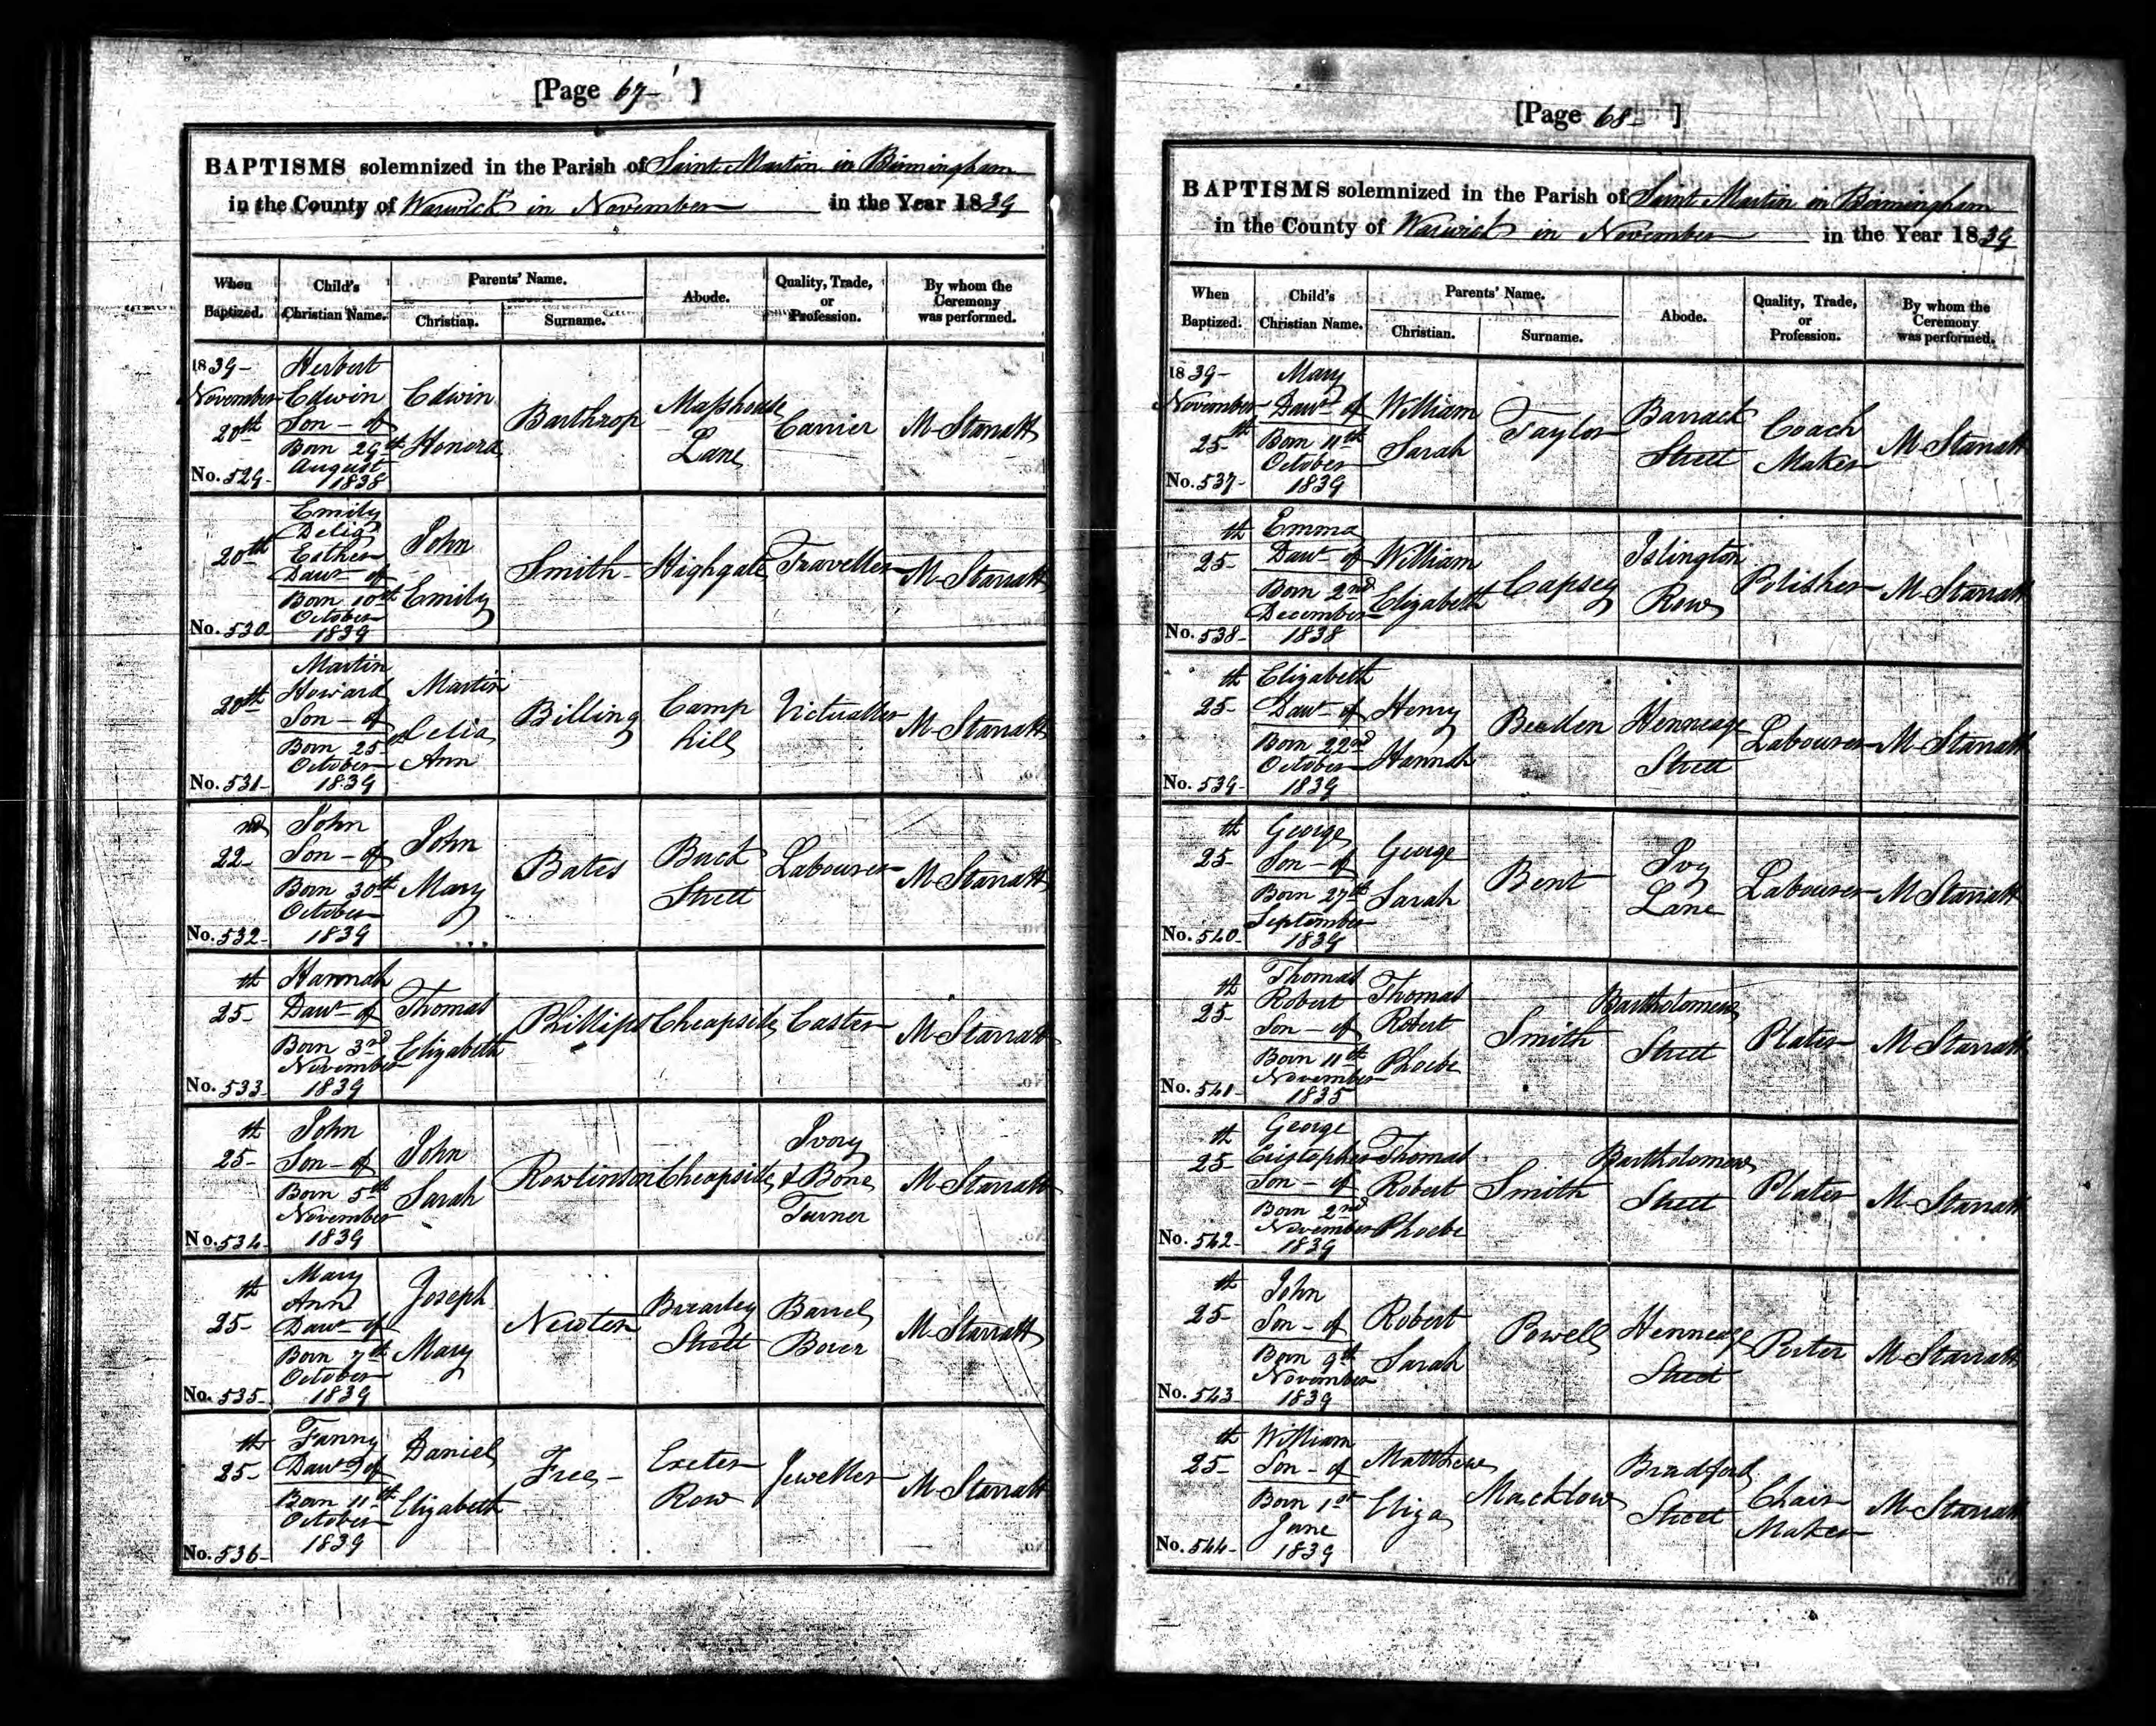 [Page 67 ]
BAPTISMS solemnized in the Parish of Saint Martin in Birmingham
in the County of Warwick in November in the Year 1839
When Baptized. Child's Christian Name. Parents' Name. Christian. Surname. Abode. Quality, Trade, or Profession. By whom the Ceremony was performed.
1839
November
20th
No. 529
Herbert
Edwin
Son - of
Born 29th
August
1838
Edwin
Honora
Barthrop
Lane
Carrier
M Starratt
20th
No. 530
Emily
Delia
Esther
Dawr of
Born 10th
October
1839
John
Emily
Smith
Highgate
Traveller
M Starratt
20th
No. 531
Martin
Howard
Son - of
Born 25
October
1839
Martin
Celia
Ann
Billing
Camp
hill
Victualler
M Starratt
22nd
No. 532
John
Son - of
Born 30th
October
1839
John
Mary
Bates
Buck
Street
Labourer
M Starratt
25th
No. 533
Hannah
Dawr of
Born 3rd
November
1839
Thomas
Elizabeth
Phillips
Cheapside
Caster
M Starratt
25th
No. 534
John
Son - of
Born 5th
November
1839
John
Sarah
Rowlinson
Cheapside
Ivory
& Bone
Turner
M Starratt
25th
No. 535
Mary
Ann
Dawr of
Born 7th
October
1839
Joseph
Mary
Newton
Brearley
Street
Barrel
Borer
M Starratt
25th
No. 536
Fanny
Dawr of
Born 11th
October
1839
Daniel
Elizabeth
Free
Exeter
Row
Jeweller
M Starratt
[Page 68 ]
BAPTISMS solemnized in the Parish of Saint Martin in Birmingham
in the County of Warwick in November in the Year 1839
When Baptized. Child's Christian Name. Parents' Name. Christian. Surname. Abode. Quality, Trade, or Profession. By whom the Ceremony was performed.
1839
November
25th
No. 537
Mary
Dawr of
Born 11th
October
1839
William
Sarah
Taylor
Barrack
Street
Coach
Maker
M Starratt
25th
No. 538
Emma
Dawr of
Born 2nd
December
1838
William
Elizabeth
Capsey
Islington
Row
Polisher
M Starratt
25th
No. 539
Elizabeth
Dawr of
Born 22nd
October
1839
Henry
Hannah
Henneage
Street
Labourer
M Starratt
25th
No. 540
George
Son - of
Born 27th
September
1839
George
Sarah
Bent
Ivy
Lane
Labourer
M Starratt
25th
No. 541
Thomas
Robert
Son - of
Born 11th
November
1835
Thomas
Robert
Phoebe
Smith
Bartholomew
Street
Plater
M Starratt
25th
No. 542
George
Cristopher
Son - of
Born 2nd
November
1839
Thomas
Robert
Phoebe
Smith
Bartholomew
Street
Plater
M Starratt
25th
No. 543
John
Son - of
Born 9th
November
1839
Robert
Sarah
Powell
Henneage
Street
Porter
M Starratt
25th
No. 544
William
Son - of
Born 1st
June
1839
Matthew
Eliza
Macklow
Bradford
Street
Chair
Maker
M Starratt